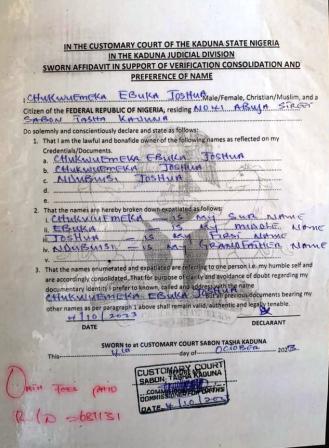 IN THE CUSTOMARY COURT OF THE KADUNA STATE NIGERIA
IN THE KADUNA JUDICIAL DIVISION
SWORN AFFIDAVIT IN SUPPORT OF VERIFICATION CONSOLIDATION AND
PREFERENCE OF NAME
I CHUKWUEMEKA EBUKA JOSHUA Male/Female, Christian/Muslim, and a
Citizen of the FEDERAL REPUBLIC OF NIGERIA, residing NO 41 ABUJA STREET
SABON TASHA KADUNA
Do solemnly and conscientiously declare and state as follows:
1. That I am the lawful and bonafide owner of the following names as reflected on my
Credentials/Documents.
a. CHUKWUEMEKA EBUKA JOSHUA
b. CHUKWUEMEKA JOSHUA
c. NDUBUISI JOSHUA
d.
e.
2. That the names are hereby broken down expatiated as follows:
i. CHUKWUEMEKA - IS MY SUR NAME
ii. EBUKA - IS MY MIDDLE NAME
iii. JOSHUA - IS MY FIRST NAME
iv. NDUBUISI - IS MY GRANDFATHER NAME
v.
3. That the names enumerated and expatiated are referring to one person i.e. my humble self and
are accordingly consolidated. That for purpose of clarity and avoidance of doubt regarding my
documentary identity I prefer to known, called and addressed with the name
CHUKWUEMEKA EBUKA JOSHUA all previous documents bearing my
other names as per paragraph 1 above shall remain valid, authentic and legally tenable.
4/10/2023
DATE DECLARANT
SWORN to at CUSTOMARY COURT SABON TASHA KADUNA
This 4th day of OCTOBER 2023
CUSTOMARY COURT
SABON TASHA KADUNA
COMMISSIONER FOR OATHS
DATE 4/10/202
Oath fees paid